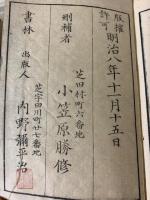 版權許可
明治八年十一月十五日
刪補者
芝田村町六番地
小笠原勝修
書林
出版人
芝宇田川町廿七番地
内野彌平治